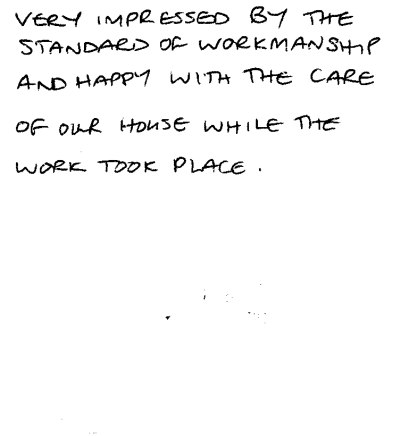 VERY IMPRESSED BY THE
STANDARD OF WORKMANSHIP
AND HAPPY WITH THE CARE
OF OUR HOUSE WHILE THE
WORK TOOK PLACE.